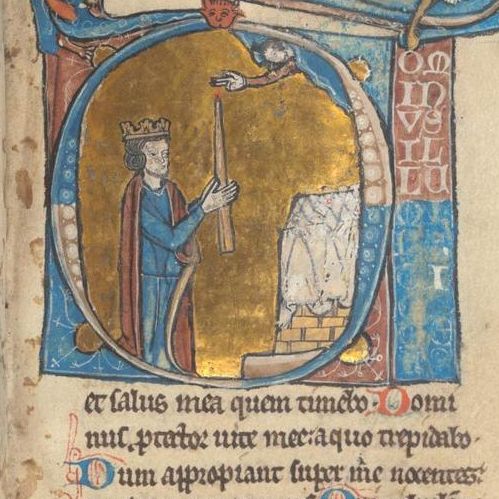 OM
IN
VS
IL
LU
et salus mea quem timebo. Domi
nus ꝓtector uite mee: a quo trepidabo.
Dum appropiant super me nocentes: